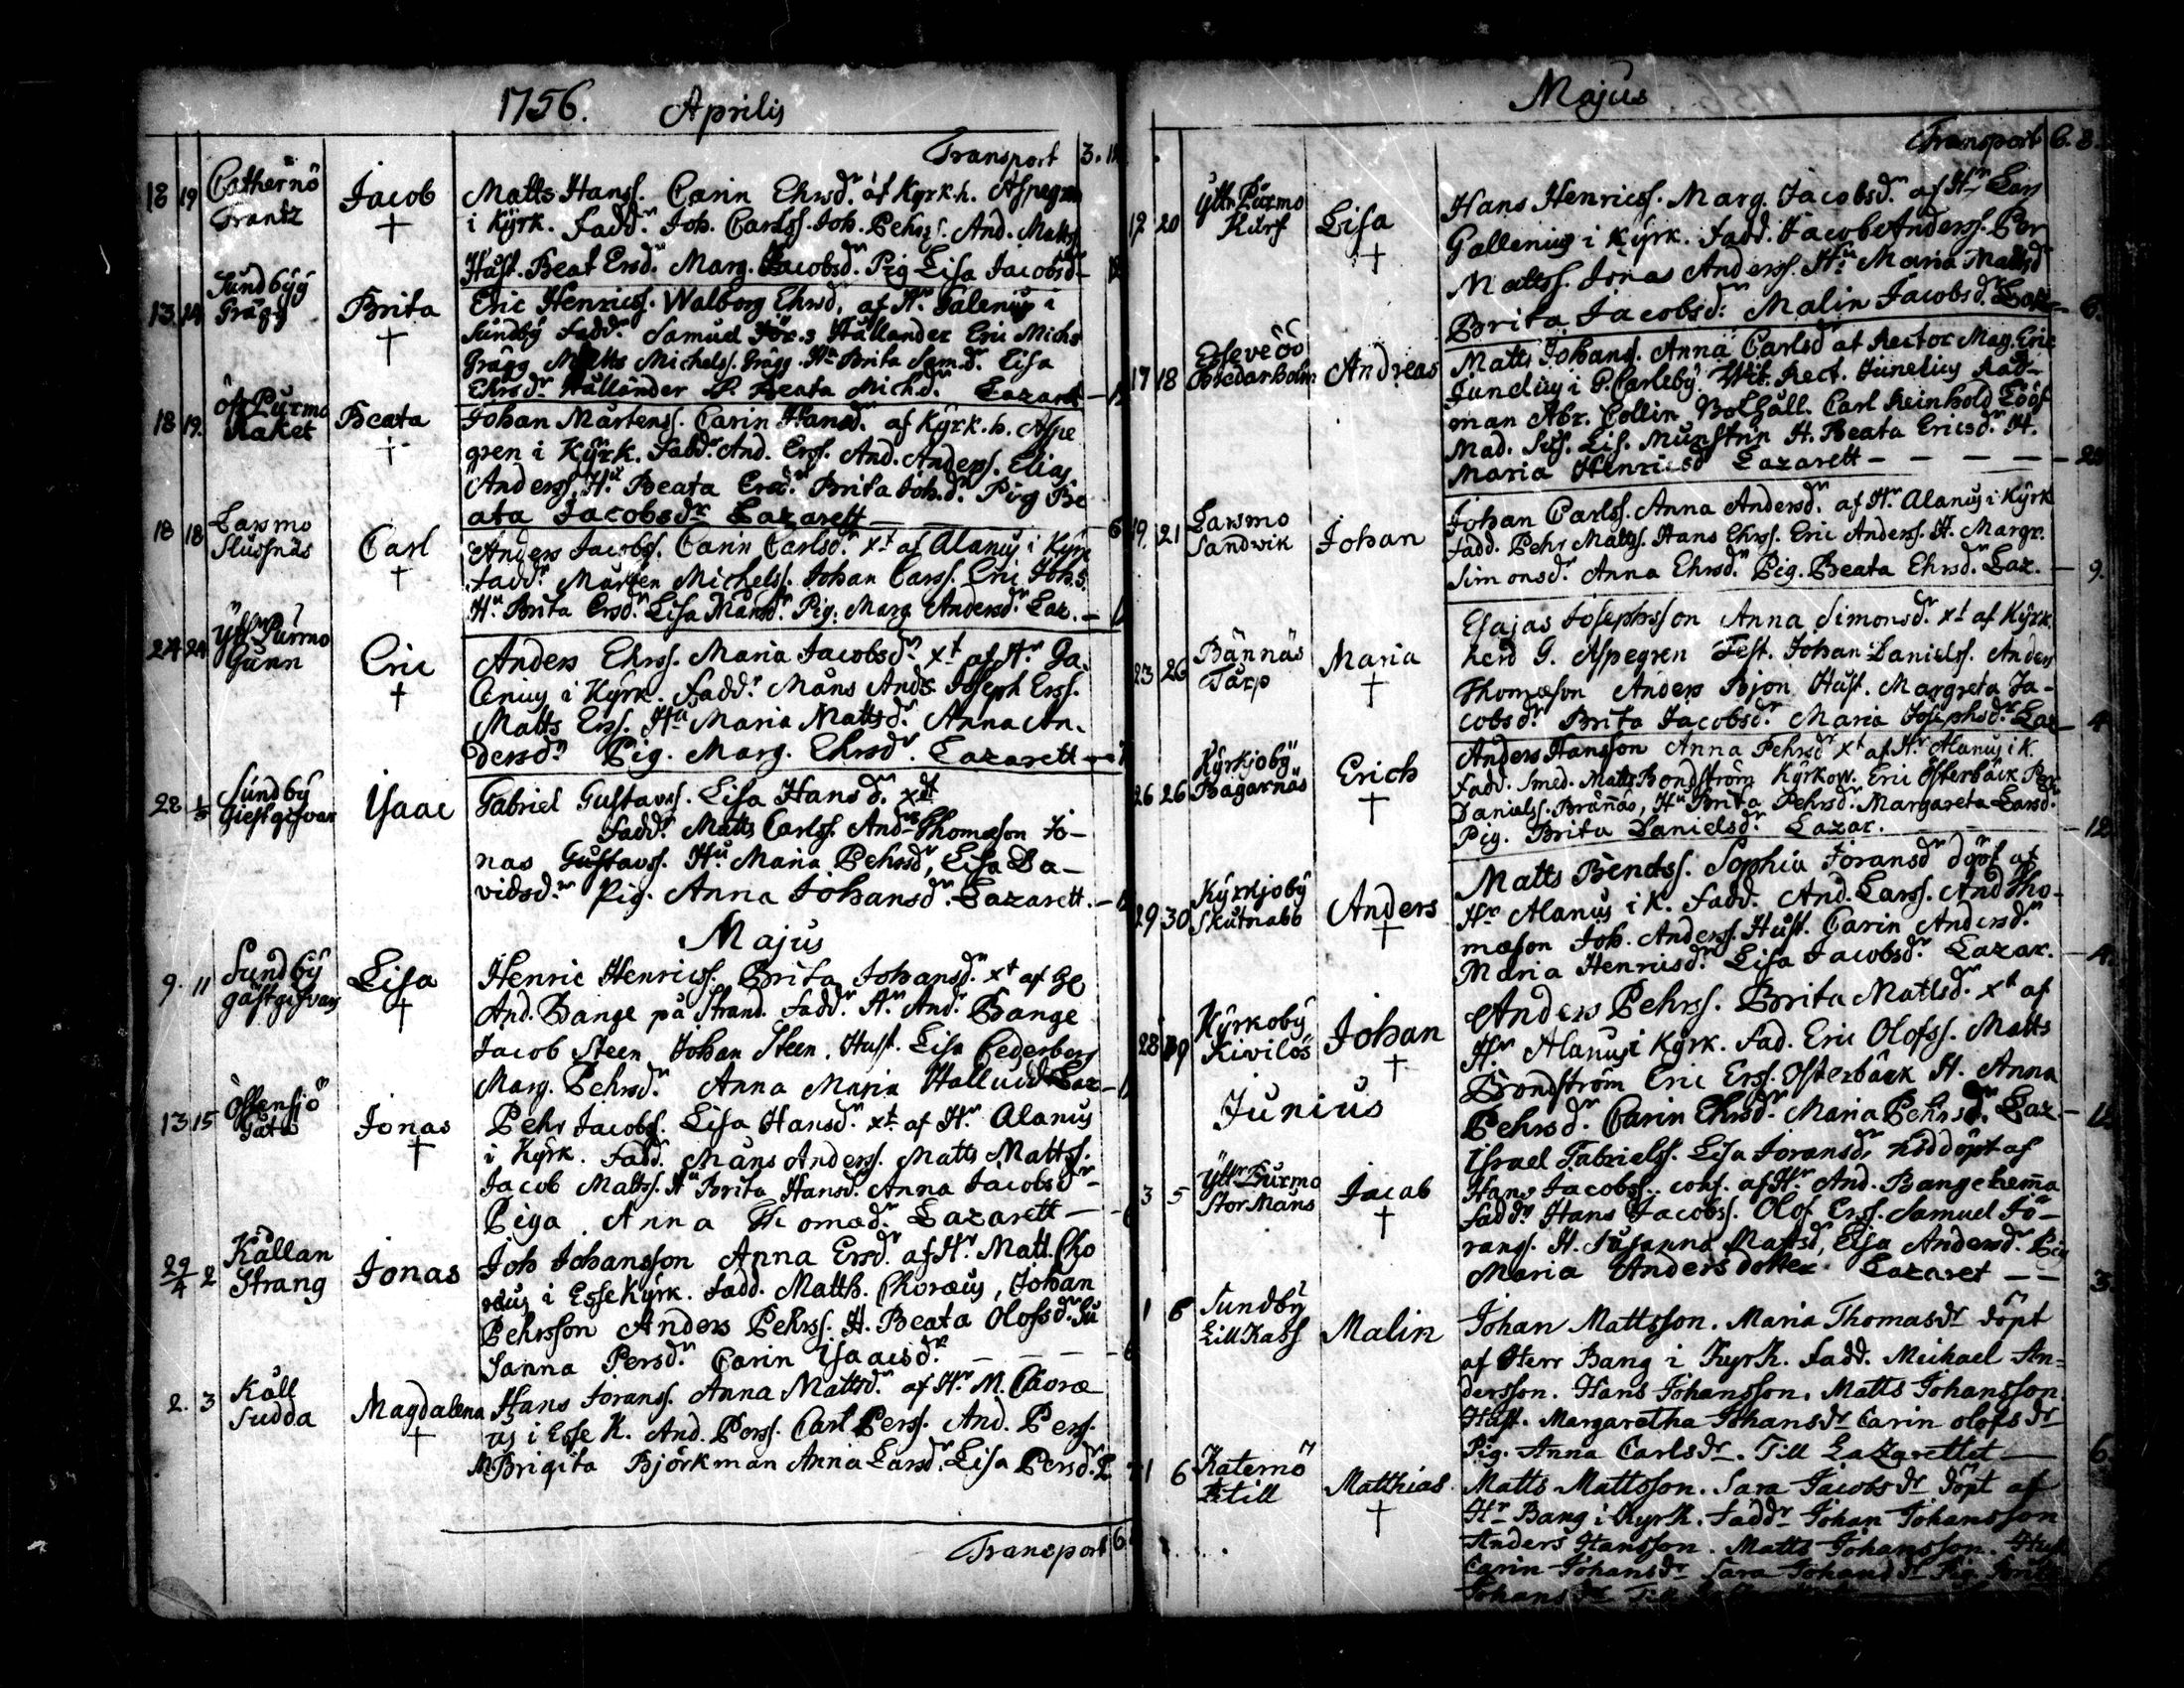 1756. Aprilis
Transport 3.
18 19 Cathernö Frantz Jacob † Matts Hanss. Carin Ehrsdr. af Kyrk.h. Aspegren
i Kyrk. Faddr. Joh. Carlss. Joh. Pehrs. And. Matts
Hust. Beat Ersdr. Marg. Jacobsdr. Pig Lisa Jacobsdr
13 Sundbÿ Grägg Brita † Eric Henricss. Walborg Ehrsdr. af Hr. Galenius i
Sundbÿ Faddr. Samuel Hällander Eric Michs
Grägg Matts Michelss. Grägg. Hu Brita Sam.dr. Lisa
Ehrsdr Hällander P. Beata Mich.dr. Lazarett
18 19. öfr Purmo Raket Beata † Johan Mårtenss. Carin Hansdr. af Kyrk.h. Aspe
gren i Kyrk. Faddr. And. Erss. And. Anderss. Elias
Anderss. Hu. Beata Ersdr. Brita Joh.dr. Pig Be
ata Jacobsdr. Lazarett 6
18 18 Larsmo Slussnäs Carl † Anders Jacobss. Carin Carlsdr. xt af Alanus i Kyrk
Faddr. Mårten Michelss. Johan Larss. Eric Joh.s.
Hu. Brita Ersdr. Lisa Månsdr. Pig. Marg. Andersdr. Laz.
24 24 Ÿttr Purmo Gunn Eric † Anders Ehrss. Maria Jacobsdr. xt af Hr. Ga-
lenius i Kyrk. Faddr. Måns Ands. Joseph Erss.
Matts Erss. Hu. Maria Mattsdr. Anna An-
dersdr. Pig. Marg. Ehrsdr. Lazarett
28 Sundbÿ Giestgifvar Isaac Gabriel Gustavs. Lisa Hansdr. xt
Faddr. Matts Carlss. Andr. Thomæson Jo-
nas Gustavss. Hu. Maria Pehrsdr, Lisa Da-
vidsdr. Pig. Anna Johansdr. Lazarett.
Majus
9. 11 Sundbÿ gästgifvars Lisa † Henric Henricss. Brita Johansdr. xt af
And. Bange på Strand. Faddr. Hr. And. Bange
Jacob Steen Johan Steen. Hust. Lisa Cederberg
Marg. Pehrsdr. Anna Maria Laz
13 15 Öffensjö Gäta Jonas † Pehr Jacobs. Lisa Hansdr. xt af Hr. Alanus
i Kyrk. Fadd. Måns Anderss. Matts Mattss.
Jacob Matss. Hu Brita Hansd. Anna Jacobsdr
Piga Anna Thomædr. Lazarett
29/4 2 Kållan Strang Jonas Joh Johansson Anna Ersdr. af Hr. Matt. Cho
ræus i Esse Kyrk. Fadd. Matth. Choræus, Johan
Pehrsson Anders Pehrss. H. Beata Olofsdr. Su
sanna Persdr. Carin Isaacsdr. 6
2. 3 Kåll Sudda Magdalena † Hans Joranss. Anna Mattsdr. af Hr. M. Choræ
us i Esse K. And. Perss. Carl Perss. And. Perss.
Brigita Björkman Anna Larsdr. Lisa Persdr.
Transport 6
Majus
Transport 6. 8.
12 20 Ÿttr Purmo Kurf Lisa † Hans Henricss. Marg. Jacobsdr. af Hr Lars
Gallenius i Kyrk. Fadd. Jacob Anderss. Per
Mattss. Jonas Anderss. Hu. Maria Mattsdr
Brita Jacobsd: Malin Jacobsdr. 6.
17 18 Andreas Matts Johanss. Anna Carlsdr af Rector Mag. Eric
Junelius i G. Carleby. Wit. Rect. Junelius Råd-
man Abr. Collin Bolhåll. Carl Reinhold Lööf
Mad. Sus. Lis. Munstrin H. Beata Ericsdr. H.
Maria Henricsdr Lazarett
19. 21 Larsmo Sandwik Johan Johan Carlss. Anna Andersdr. af Hr Alanus i Kyrk
Fadd. Pehr Matts. Hans Ehrss. Eric Anderss. H. Margr.
Simonsdr. Anna Ehrsdr. Pig. Beata Ehrsdr. Laz. 9.
23 26 Bännäs Tarp Maria † Esajas Josephsson Anna Simonsdr. xt af Kyrk.
herd G. Aspegren Test. Johan Danielss. Anders
Thomæson Anders Bjon Hust. Margreta Ja-
cobsdr. Brita Jacobsdr. Maria Josephsdr. Laz 4
26 26 Kyrkjobÿ Bagarnäs Erich † Anders Hansson Anna Pehrsdr xt af Hr Alanus i K
Fadd. Smed. Matts Bondström Kyrkow. Eric Österbäck Per
Danielss. Bränäs, Hu. Brita Pehrsdr. Margareta Larsdr.
Pig. Brita Danielsdr. Lazar. 12
29 30 Kyrkjobÿ Skutnabb Anders † Matts Bendss. Sophia Joransdr döpt af
Hr Alanus i K. Fadd. And. Larss. And Tho-
mæson Joh. Anderss. Hust. Carin Andersdr.
Maria Henricsdr. Lisa Jacobsdr. Lazar. 4.
28 Kyrkobÿ Kivilös Johan † Anders Pehrss. Brita Mattsdr. xt af
Hr Alanus i Kyrk. Fad. Eric Olofss. Matts
Brondström Eric Erss. Österbäck H. Anna
Pehrsdr. Carin Ehrsdr. Maria Pehrsdr. Laz.
Junius
3 5 Ÿttr Purmo Stor Måns Jacob † Israel Gabrielss. Lisa Joransdr nöddöpt af
Hans Jacobss. conf. af Hr. And. Bange hema
Faddr. Hans Jacobss. Olof Erss. Samuel Jö-
ranss. H. Susanna Mattsd, Lisa Andersdr. Pig
Maria Anders dotter Lazaret 3.
1 6 Sundbÿ Lill Kass Malin Johan Mattsson. Maria Thomasdr döpt
af Herr Bang i Kyrk. Fadd. Michael An-
dersson. Hans Johansson. Matts Johansson
Hust. Margaretha Johansdr Carin olofsdr
Pig. Anna Carlsdr. Till Lazarettet 6.
1 6 Katernö Still Matthias † Matts Mattsson. Sara Jacobsdr döpt af
Hr Bang i Kyrk. Faddr Johan Johansson
Anders Hansson. Matts Johansson. Hust
Carin Johansdr Sara Johansdr Pig. Brita
Johansdr